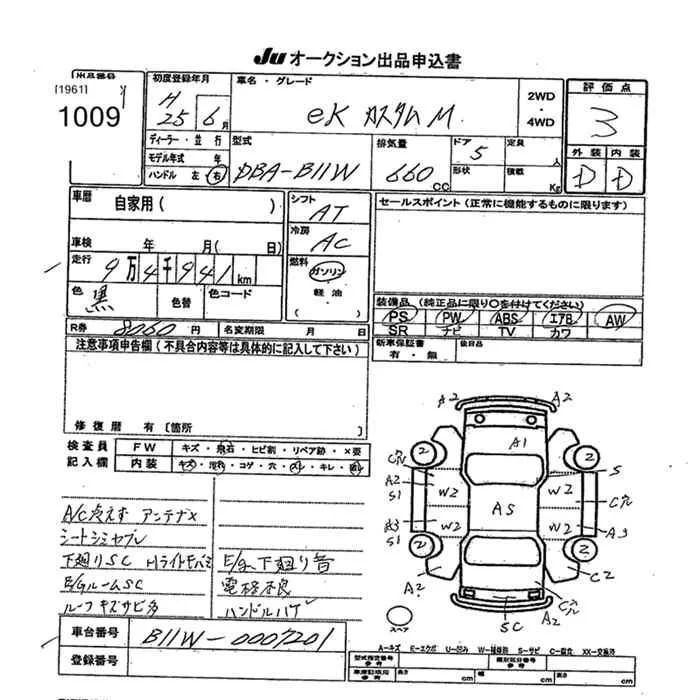 Ju オークション出品申込書
出品番号
[1961]
1009
初度登録年月
H 25 6月
車名・グレード
eK カスタム M
2WD・4WD
評価点
3
ディーラー・並行
モデル年式 年
ハンドル 左 右
型式
DBA-B11W
排気量
660 CC
ドア 5
形状
定員 人
積載 Kg
外装 内装
D D
車歴
自家用( )
車検 年 月( 日)
走行
9万4千941 km
色
黒
色替
色コード
シフト
AT
冷房
AC
燃料
ガソリン・軽油・( )
セールスポイント(正常に機能するものに限ります)
装備品(純正品に限り○を付けてください)
PS PW ABS エアB AW
SR ナビ TV カワ
R券 8060円
名変期限 月 日
新車保証書
有・無
後日品
注意事項申告欄(不具合内容等は具体的に記入して下さい)
修復歴 有〔箇所 〕
検査員記入欄
FW キズ・飛石・ヒビ割・リペア跡・×要
内装 キズ・汚れ・コゲ・穴・・キレ・
A/C冷えず アンテナX
シートシミヤブレ
下廻りSC Hライト
E/gルームSC
ルーフキズサビ多
E/g、下廻り音
電格不良
ハンドルハゲ
A2 A2
2 A1 2
A2 S1 W2 W2 S
A5
A3 S1 W2 W2 A3
2 2
A2 C2
SC A2
スペア
車台番号
B11W-0007201
登録番号
A-キズ E-エクボ U-凹み W-補修跡 S-サビ C-腐食 XX-交換済
型式指定番号 参考
類別区分番号 参考
車庫証明用 参考
長さ cm 幅 cm 高さ cm